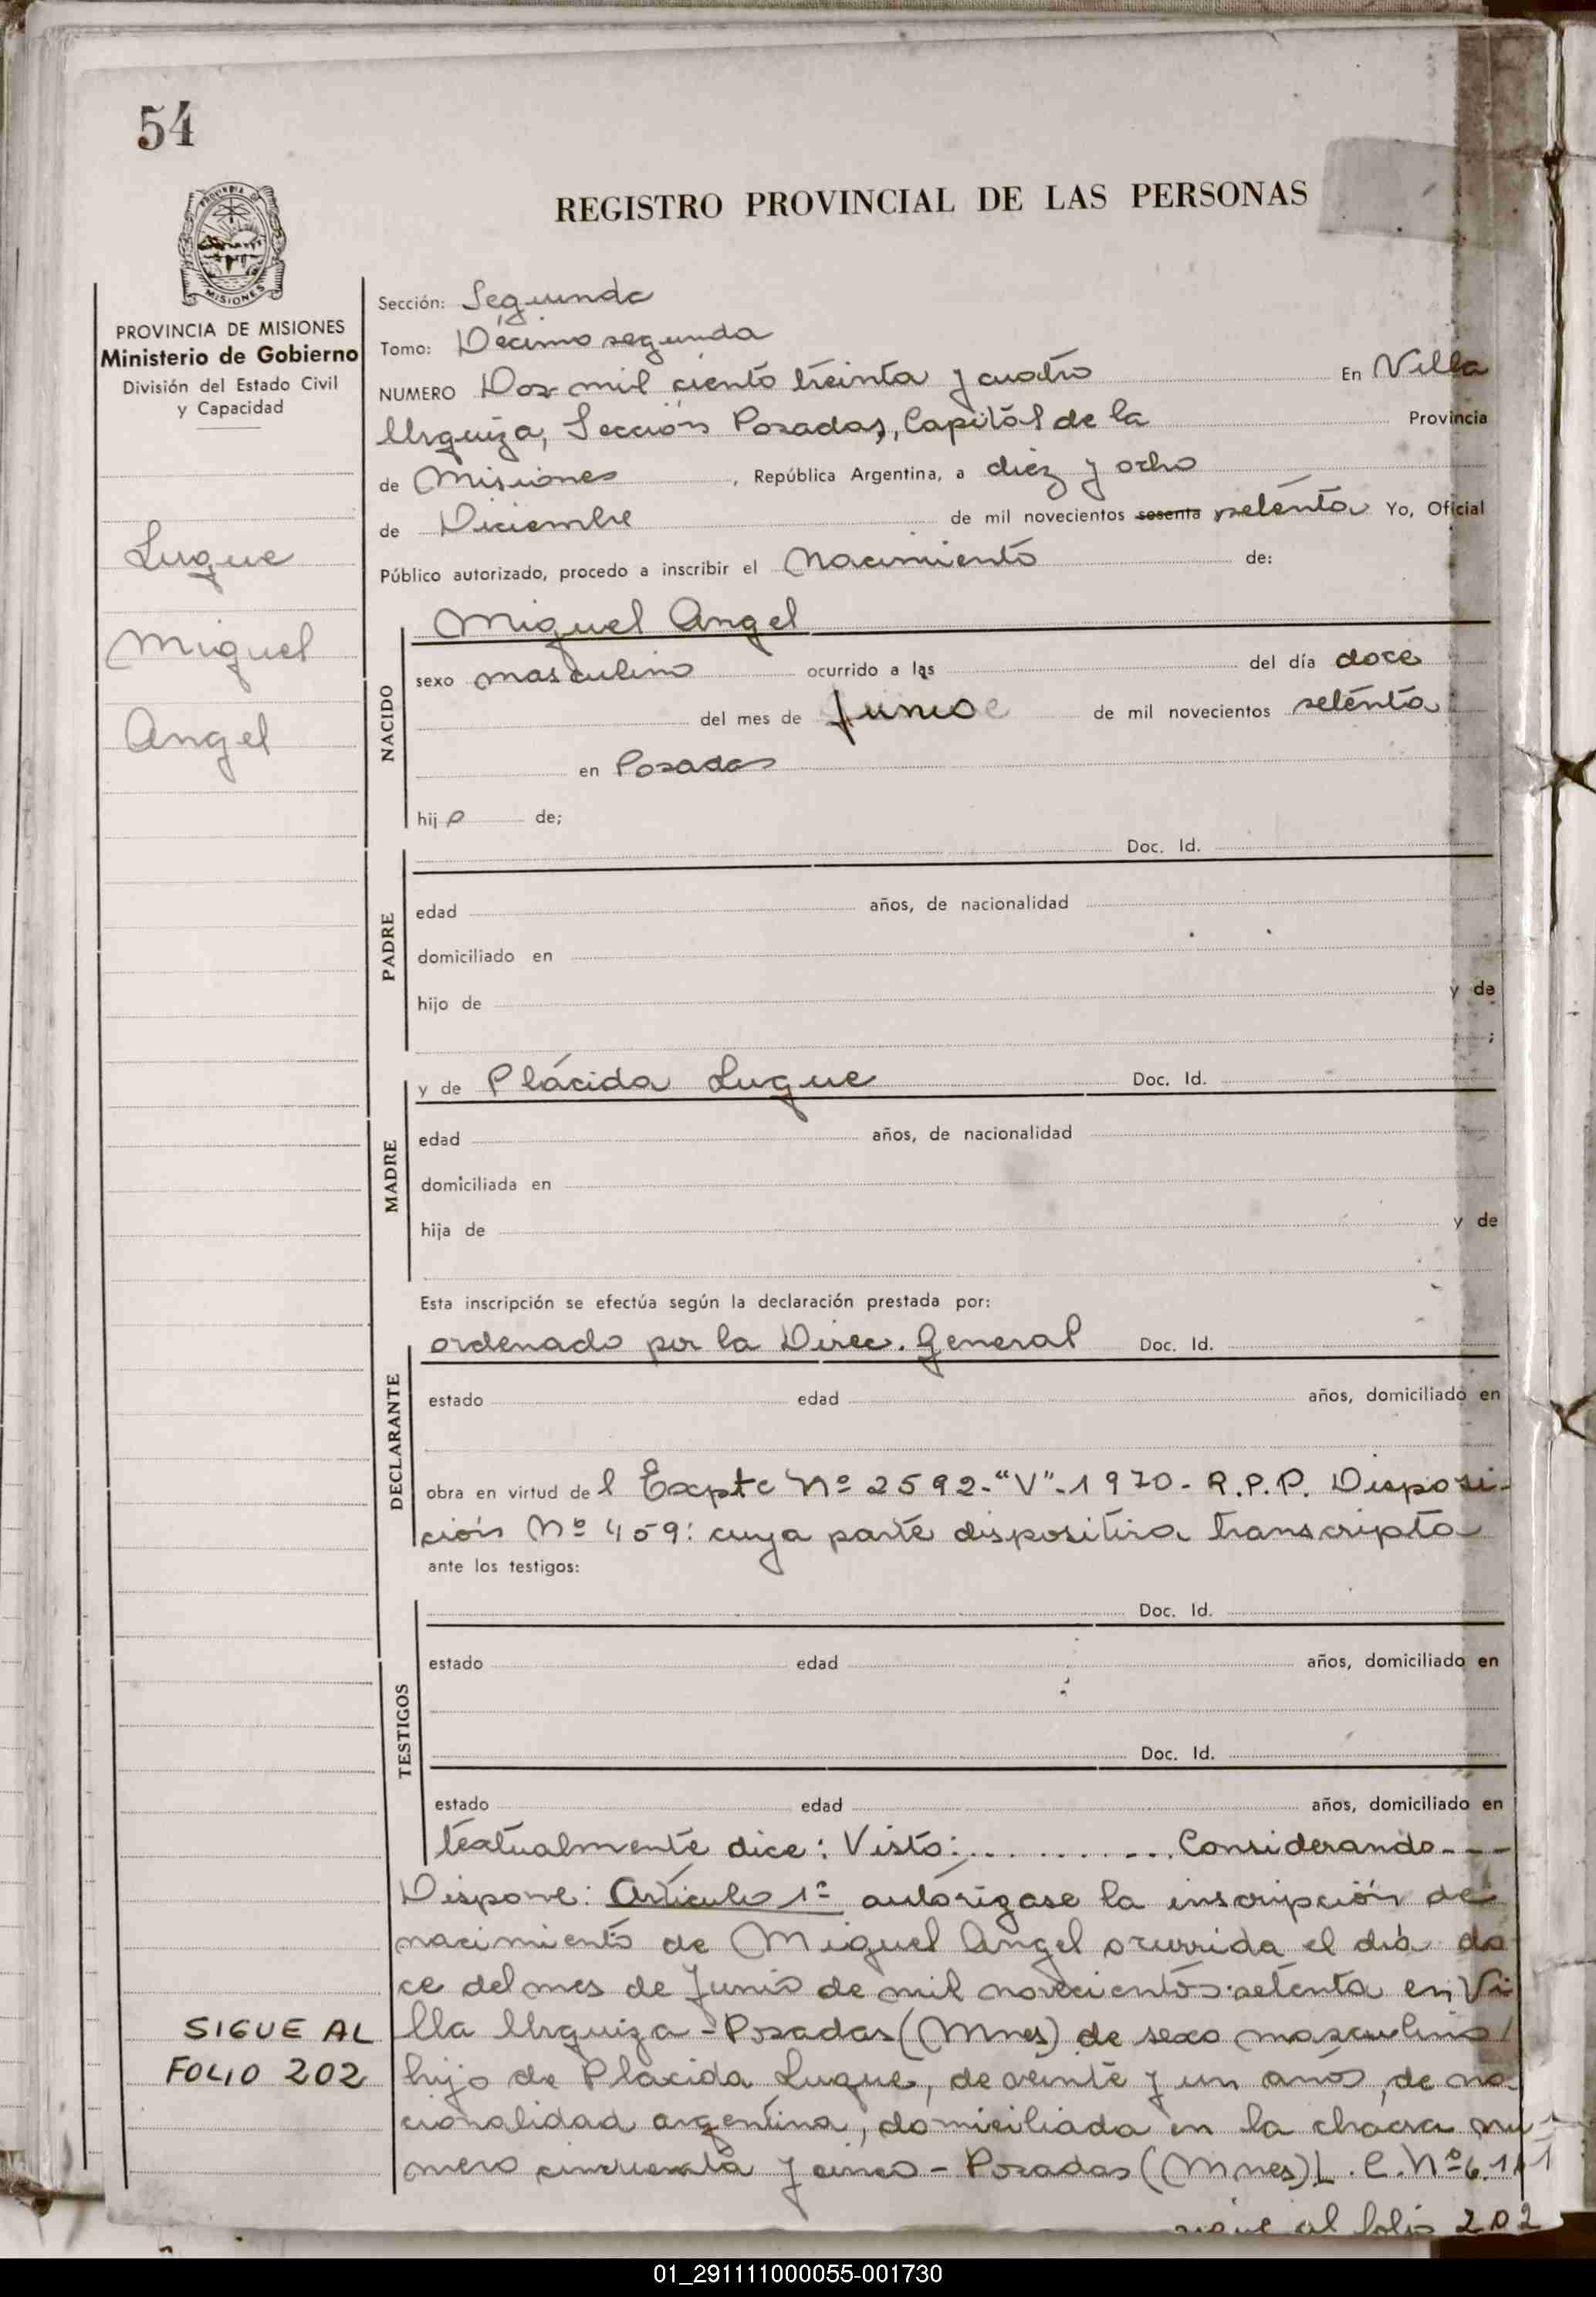 54
REGISTRO PROVINCIAL DE LAS PERSONAS
PROVINCIA DE MISIONES
MISIONES
PROVINCIA DE MISIONES
Ministerio de Gobierno
División del Estado Civil
y Capacidad
Luque
Miguel
Angel
SIGUE AL
FOLIO 202
Sección: Segunda
Tomo: Décimo segunda
NUMERO Dos mil ciento treinta y cuatro En Villa
Urquiza, Sección Posadas, Capital de la Provincia
de Misiones, República Argentina, a diez y ocho
de Diciembre de mil novecientos sesenta setenta Yo, Oficial
Público autorizado, procedo a inscribir el Nacimiento de:
NACIDO
Miguel Angel
sexo masculino ocurrido a las del día doce
del mes de Junio de mil novecientos setenta
en Posadas
hijo de;
PADRE
Doc. Id.
edad años, de nacionalidad
domiciliado en
hijo de y de
;
MADRE
y de Plácida Luque Doc. Id.
edad años, de nacionalidad
domiciliada en
hija de y de
Esta inscripción se efectúa según la declaración prestada por:
DECLARANTE
ordenado por la Direc. General Doc. Id.
estado edad años, domiciliado en
obra en virtud del Expte Nº 2592-"V"-1970- R.P.P. Disposi-
ción Nº 459: cuya parte dispositiva transcripta
ante los testigos:
TESTIGOS
Doc. Id.
estado edad años, domiciliado en
Doc. Id.
estado edad años, domiciliado en
textualmente dice: Visto:.......... Considerando---
Dispone: Artículo 1º autorízase la inscripción de
nacimiento de Miguel Angel ocurrida el día do
ce del mes de Junio de mil novecientos setenta en Vi
lla Urquiza - Posadas (Mnes) de sexo masculino/
hijo de Plácida Luque, de veinte y un años, de na-
cionalidad argentina, domiciliada en la chacra nu-
mero cincuenta y cinco - Posadas (Mnes) L.C. Nº 6.1
sigue al folio 202
01_291111000055-001730